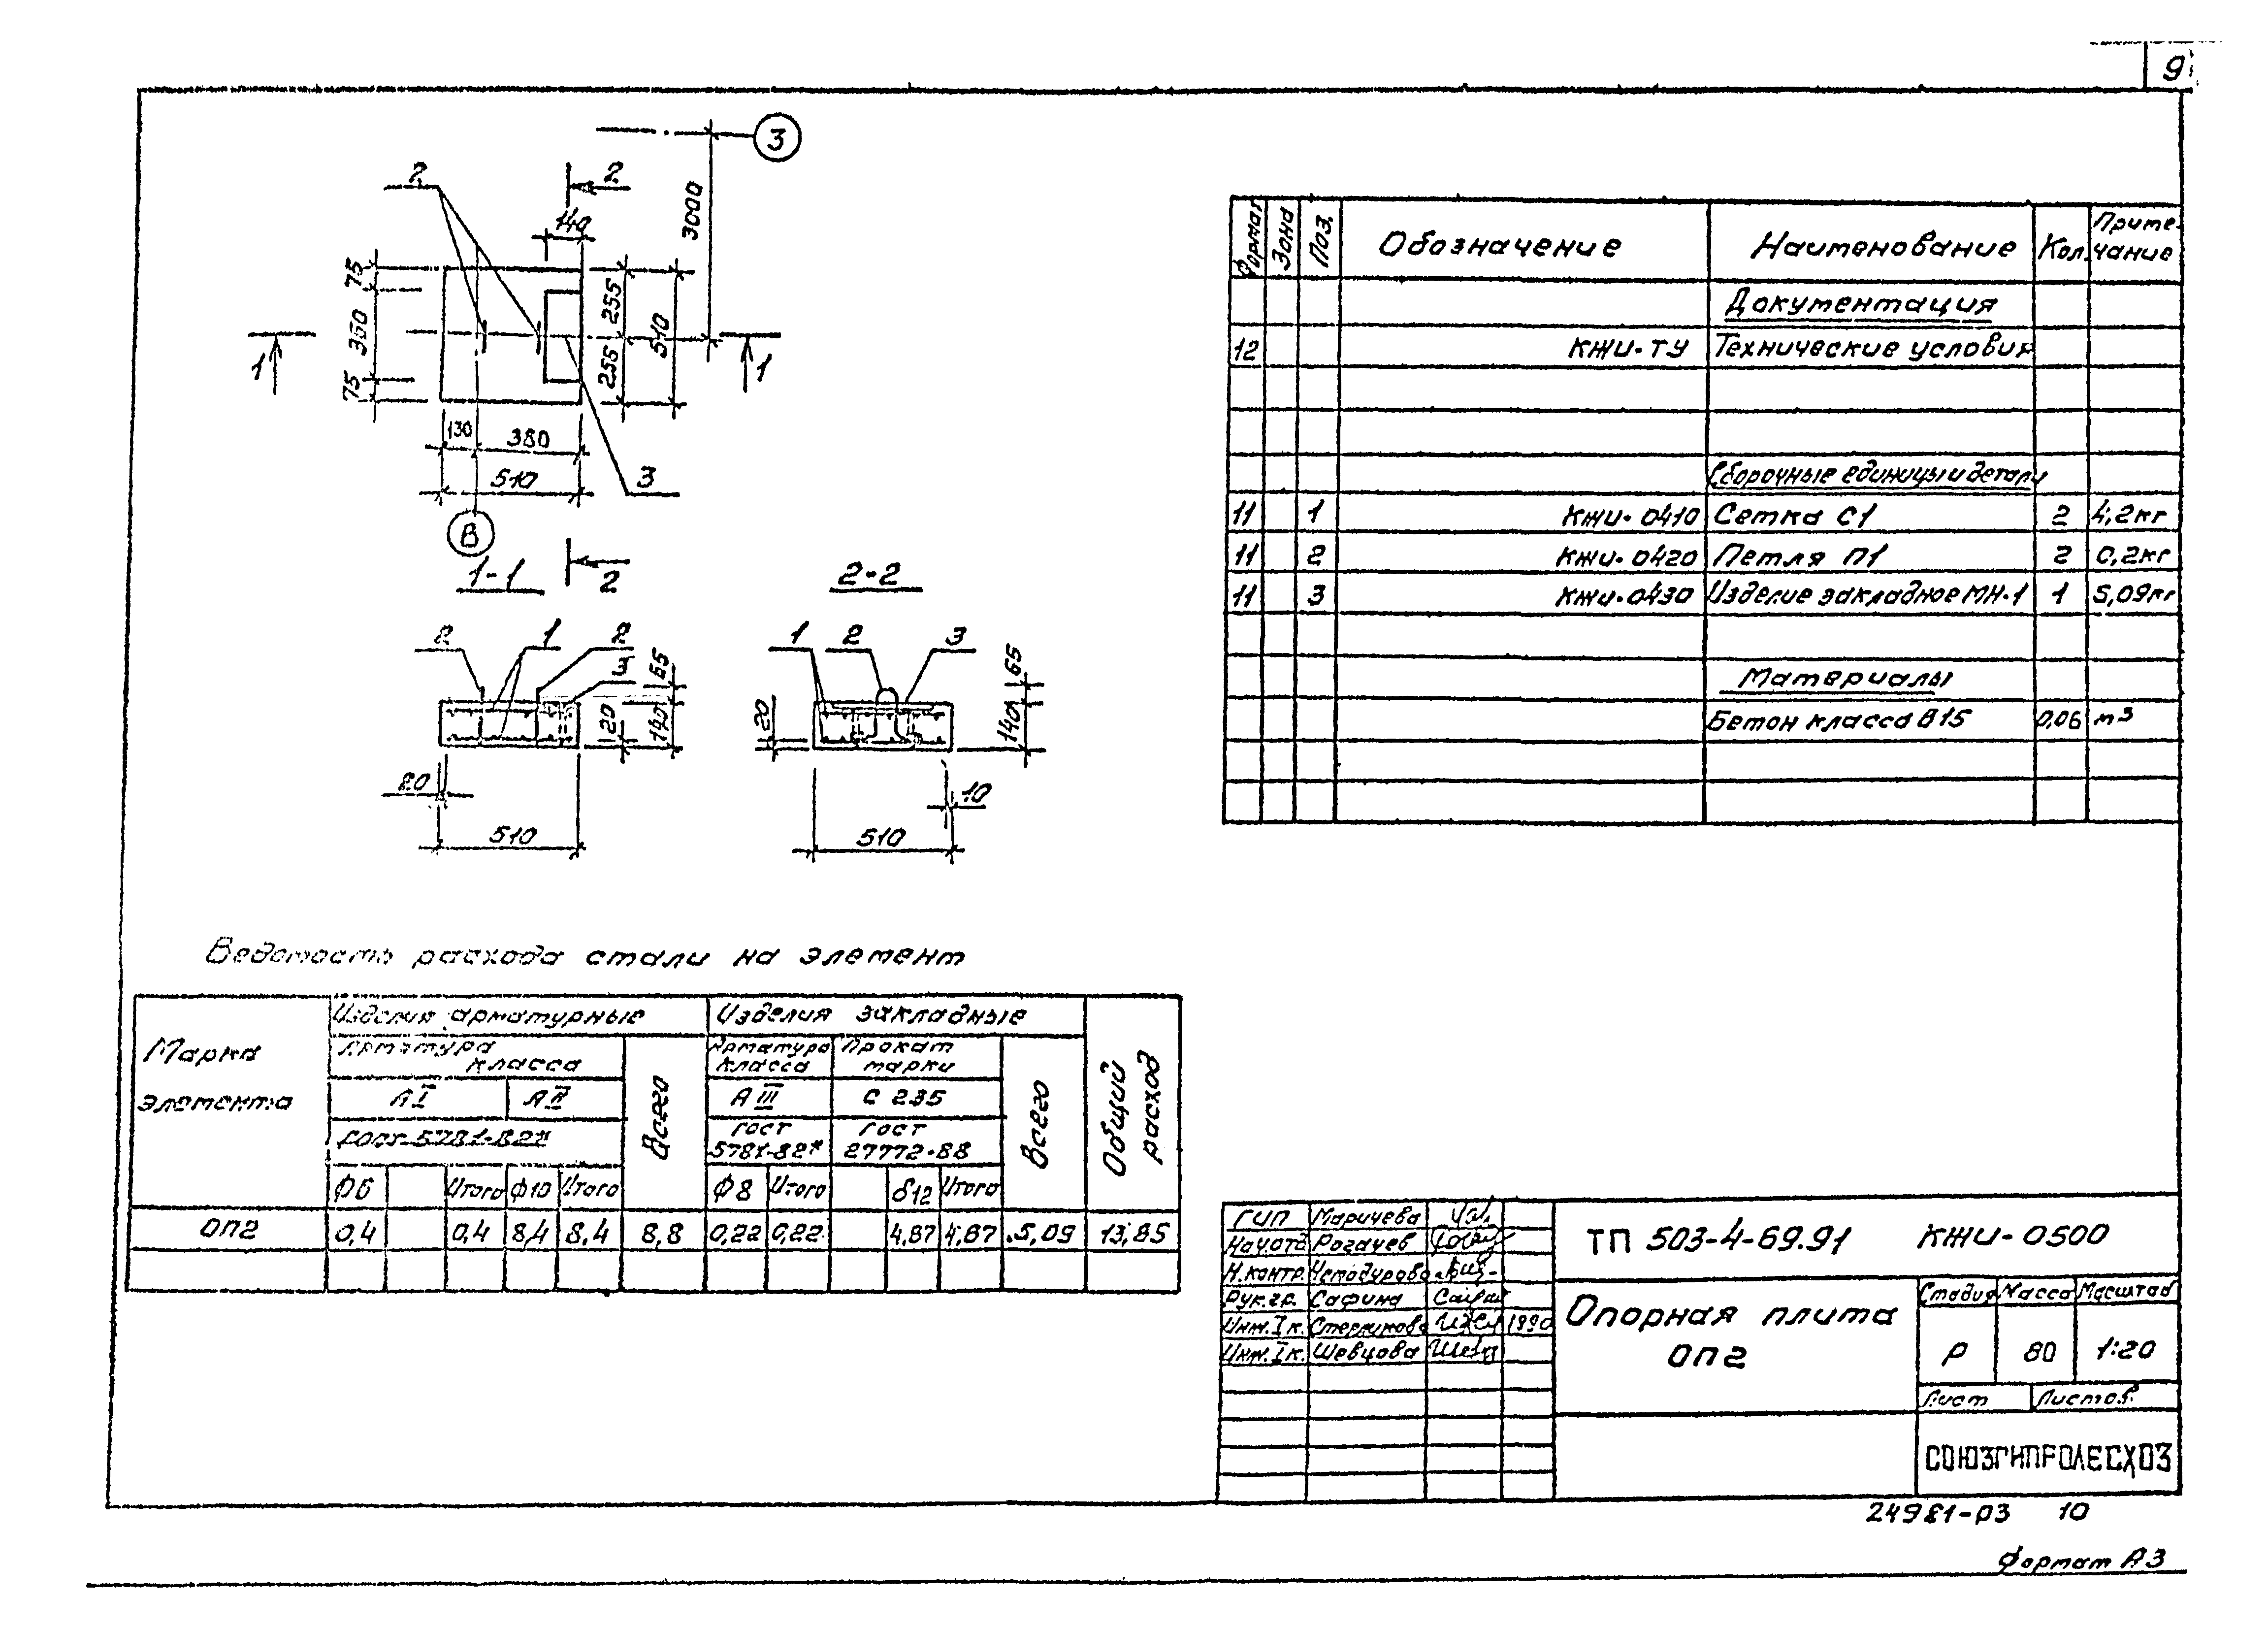 9
3
2
2
140
3000
75
360
75
255
255
510
1
1
130
380
510
3
В
2
1-1
2-2
2
1
2
3
65
20
140
20
510
1
2
3
65
20
140
10
510
Формат
Зона
Поз.
Обозначение
Наименование
Кол.
Приме-
чание
Документация
12 КЖИ-ТУ Технические условия
Сборочные единицы и детали
11 1 КЖИ-0410 Сетка С1 2 4,2кг
11 2 КЖИ-0420 Петля П1 2 0,2кг
11 3 КЖИ-0430 Изделие закладное МН-1 1 5,09кг
Материалы
Бетон класса В15 0,06 м3
Ведомость расхода стали на элемент
Марка
элемента
Изделия арматурные
Изделия закладные
Общий
расход
Арматура
класса
Всего
Арматура
класса
Прокат
марки
Всего
АI
АII
АIII
С 235
ГОСТ 5781-82*
ГОСТ
5781-82*
ГОСТ
27772-88
Ф6 Итого Ф10 Итого Ф8 Итого δ12 Итого
ОП2 0,4 0,4 8,4 8,4 8,8 0,22 0,22 4,87 4,87 5,09 13,85
ГИП Маричева
Нач.отд Рогачев
Н.контр.
Рук.гр. Сафина
Инж.Iк. 1990
Инж.Iк. Шевцова
ТП 503-4-69.91 КЖИ-0500
Опорная плита
ОП2
Стадия Масса Масштаб
Р 80 1:20
Лист Листов
СОЮЗГИПРОЛЕСХОЗ
24981-03 10
Формат А3